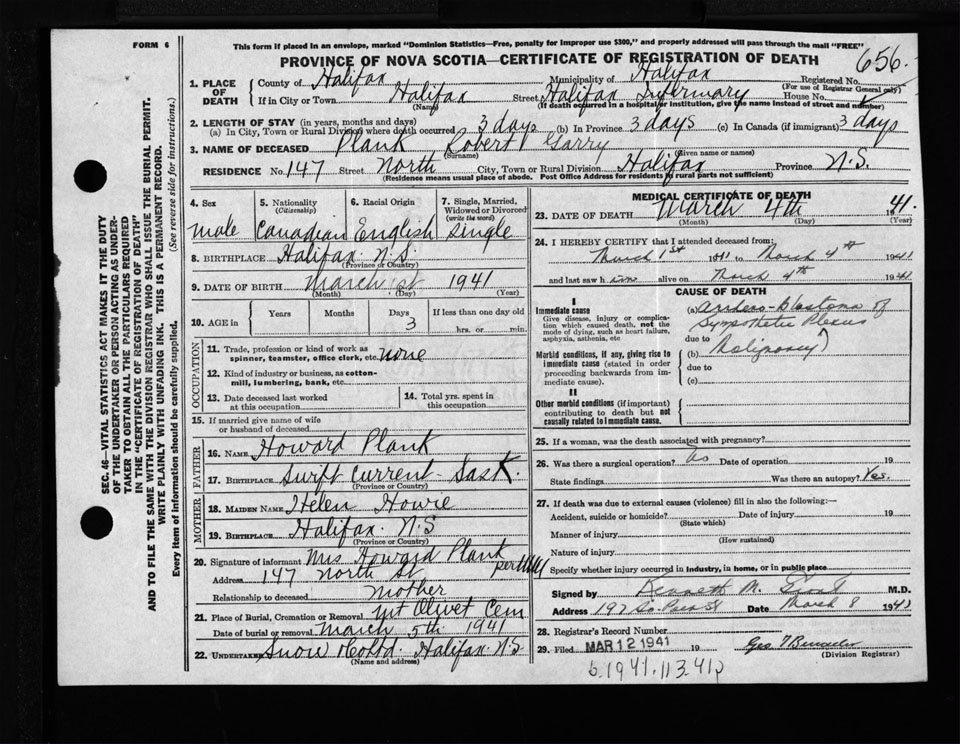 FORM 6
This form if placed in an envelope, marked "Dominion Statistics—Free, penalty for improper use $300," and properly addressed will pass through the mail "FREE"
PROVINCE OF NOVA SCOTIA—CERTIFICATE OF REGISTRATION OF DEATH
656.
1. PLACE OF DEATH
County of Halifax Municipality of Halifax Registered No.
(For use of Registrar General only)
If in City or Town Halifax Street Halifax Infirmary House No.
(Name) (If death occurred in a hospital or institution, give the name instead of street and number)
2. LENGTH OF STAY (in years, months and days)
(a) In City, Town or Rural Division where death occurred 3 days (b) In Province 3 days (c) In Canada (if immigrant) 3 days
3. NAME OF DECEASED Plank Robert Garry
(Surname) (Given name or names)
RESIDENCE No. 147 Street North City, Town or Rural Division Halifax Province N.S.
(Residence means usual place of abode. Post Office Address for residents in rural parts not sufficient)
4. Sex
male
5. Nationality (Citizenship)
Canadian
6. Racial Origin
English
7. Single, Married, Widowed or Divorced (write the word)
Single
8. BIRTHPLACE Halifax N.S.
(Province or Country)
9. DATE OF BIRTH March 1st 1941
(Month) (Day) (Year)
10. AGE in
Years Months Days If less than one day old
3 hrs. or min.
OCCUPATION
11. Trade, profession or kind of work as spinner, teamster, office clerk, etc. none
12. Kind of industry or business, as cotton-mill, lumbering, bank, etc.
13. Date deceased last worked at this occupation
14. Total yrs. spent in this occupation
15. If married give name of wife or husband of deceased
FATHER
16. NAME Howard Plank
17. BIRTHPLACE Swift Current Sask.
(Province or Country)
MOTHER
18. MAIDEN NAME Helen Howie
19. BIRTHPLACE Halifax N.S
(Province or Country)
20. Signature of informant Mrs Howard Plank
Address 147 North St
Relationship to deceased mother
21. Place of Burial, Cremation or Removal Mt Olivet Cem
Date of burial or removal March 5th 1941
22. UNDERTAKER Snow & Co Ltd. Halifax N.S
(Name and address)
MEDICAL CERTIFICATE OF DEATH
23. DATE OF DEATH March 4th 1941.
(Month) (Day) (Year)
24. I HEREBY CERTIFY that I attended deceased from:
March 1st 1941 to March 4th 1941
and last saw him alive on March 4th 1941
CAUSE OF DEATH
I
Immediate cause
Give disease, injury or complication which caused death, not the mode of dying, such as heart failure, asphyxia, asthenia, etc
(a) of Sympathetic Plexus
due to
Morbid conditions, if any, giving rise to immediate cause (stated in order proceeding backwards from immediate cause).
(b) Malignancy)
due to
(c)
II
Other morbid conditions (if important) contributing to death but not causally related to immediate cause.
25. If a woman, was the death associated with pregnancy?
26. Was there a surgical operation? No Date of operation 19
State findings Was there an autopsy? Yes.
27. If death was due to external causes (violence) fill in also the following:—
Accident, suicide or homicide? Date of injury 19
(State which)
Manner of injury
(How sustained)
Nature of injury
Specify whether injury occurred in industry, in home, or in public place
Signed by Kenneth M. M.D.
Address 197 So. Park St Date March 8 1941
28. Registrar's Record Number
29. Filed MAR 12 1941 19 Geo
(Division Registrar)
b.1941.113.41p
SEC. 46—VITAL STATISTICS ACT MAKES IT THE DUTY
OF THE UNDERTAKER OR PERSON ACTING AS UNDER-
TAKER TO OBTAIN ALL THE PARTICULARS REQUIRED
IN THE "CERTIFICATE OF REGISTRATION OF DEATH"
AND TO FILE THE SAME WITH THE DIVISION REGISTRAR WHO SHALL ISSUE THE BURIAL PERMIT.
WRITE PLAINLY WITH UNFADING INK. THIS IS A PERMANENT RECORD.
Every item of information should be carefully supplied. (See reverse side for instructions.)